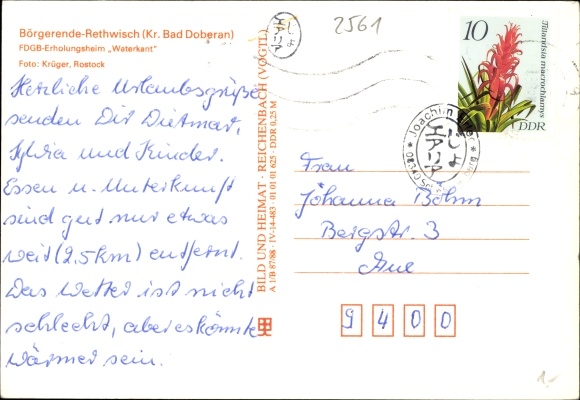 Börgerende-Rethwisch (Kr. Bad Doberan)
FDGB-Erholungsheim „Waterkant"
Foto: Krüger, Rostock
Herzliche Urlaubsgrüße
senden Dir Dietmar,
Sylvia und Kinder.
Essen u. Unterkunft
sind gut nur etwas
weit (2,5km) entfernt.
Das Wetter ist nicht
schlecht, aber es könnte
wärmer sein.
BILD UND HEIMAT · REICHENBACH (VOGTL)
A 1/B 87/88 · IV-14-483 · 01 01 01 625 · DDR 0,25 M
2561
10
Tillandsia macrochlamys
DDR
Joachim
Frau
Johanna Böhm
Bergstr. 3
Aue
9400
1,-